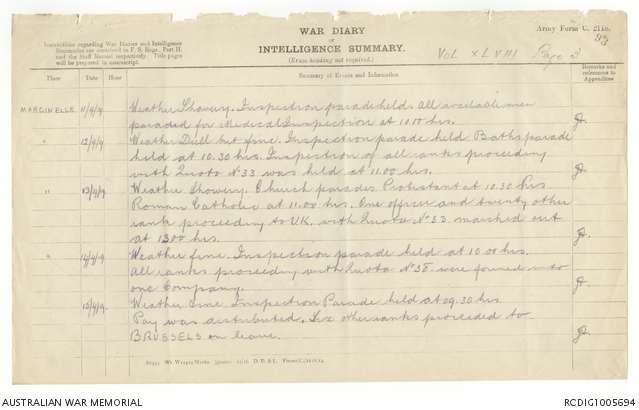 WAR DIARY
OR
INTELLIGENCE SUMMARY.
(Erase heading not required.)
Army Form C. 2118.
Instructions regarding War Diaries and Intelligence
Summaries are contained in F. S. Regs., Part II.
and the Staff Manual respectively. Title pages
will be prepared in manuscript.
VOL XLVIII Page 3
Place Date Hour Summary of Events and Information Remarks and references to Appendices
MARCINELLE 11/4/19 Weather Showery. Inspection parade held. All available men
paraded for Medical Inspection at 10.10 hrs.
" 12/4/19 Weather Dull but fine. Inspection parade held. Baths parade
held at 10.30 hrs. Inspection of all ranks proceeding
with Quota No 33 was held at 11.00 hrs.
" 13/4/19 Weather Showery. Church parades Protestant at 10.30 hrs
Roman Catholic at 11.00 hrs. One officer and twenty other
rank proceeding to U.K. with Quota No 33 marched out
at 1300 hrs.
" 14/4/19 Weather fine. Inspection parade held at 10.00 hrs.
All ranks proceeding with Quota No 38 were formed into
one Company.
15/4/19 Weather fine. Inspection Parade held at 09.30 hrs.
Pay was distributed. Six other ranks proceeded to
BRUSSELS on leave.
AUSTRALIAN WAR MEMORIAL
RCDIG1005694